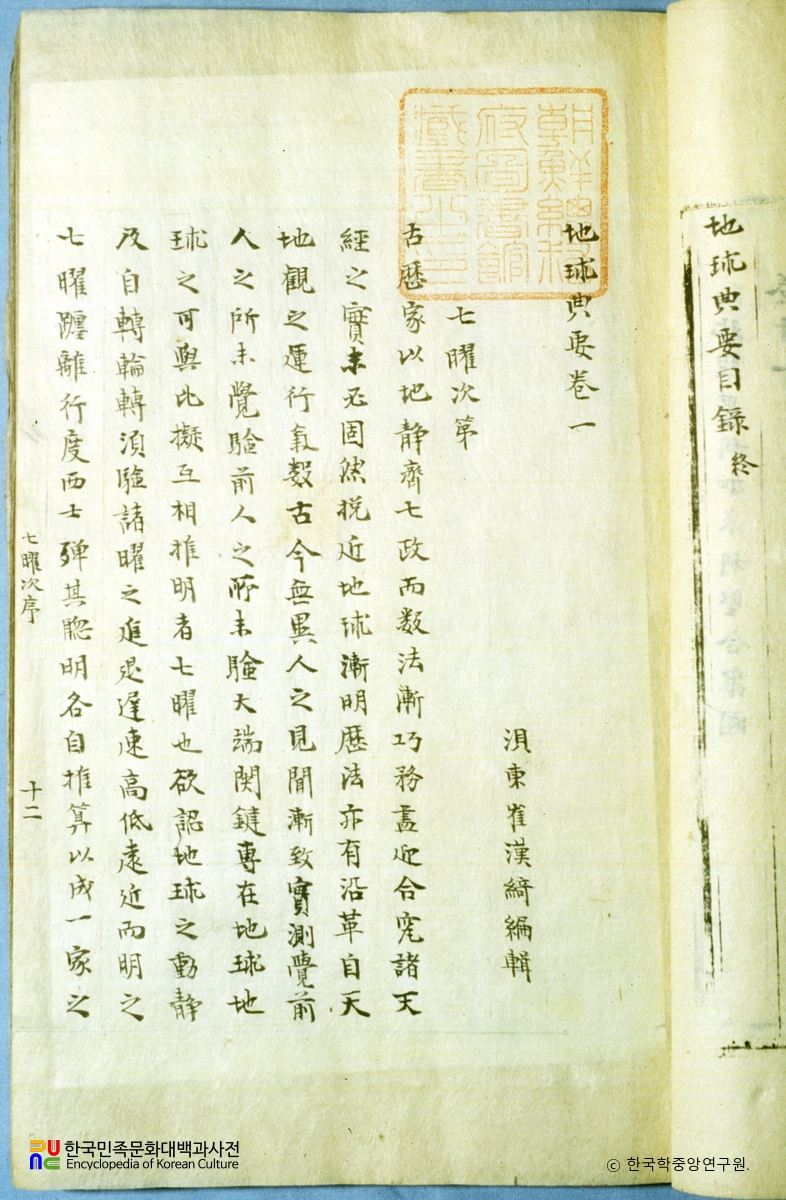 地球典要目録 終
朝鮮總督
府圖書館
藏書之印
地球典要卷一
浿東崔漢綺編輯
七曜次第
古曆家以地靜齊七政而数法漸巧務盡迎合究諸天
經之實未必固然挩近地球漸明歷法亦有沿革自天
地觀之運行氣数古今無異人之見聞漸致實測覺前
人之所未覺驗前人之所未驗大端関鍵專在地球地
球之可與比擬互相推明者七曜也欲認地球之動静
及自轉輪轉須驗諸曜之進退遲速高低遠近而明之
七曜躔離行度西士殫其聰明各自推算以成一家之
七曜次序
十二
한국민족문화대백과사전
Encyclopedia of Korean Culture
© 한국학중앙연구원.